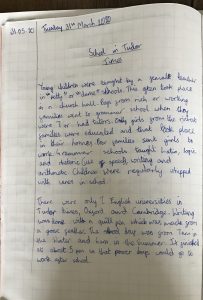 31.03.20 Tuesday 31st March 2020
School in Tudor
Times
Young children were taught by a female teacher
in "petty" or "dame" schools. This often took place
in a church until boys from rich or working
families went to grammar school when they
were 7 or had tutors. Only girls from the richest
families were educated and that took place
in their homes. Few families sent girls to
work. Grammar schools taught Latin, logic
and rhetoric (use of speech), writing and
arithmetic. Children were regularly whipped
with canes in school.
There were only 2 English universities in
Tudor times, Oxford and Cambridge. Writing
was done with a quill pen which was made from
a goose feather. The school day was from 7am in
the winter and 6am in the summer. It finished
at about 5pm so that poorer boys could go to
work after school.